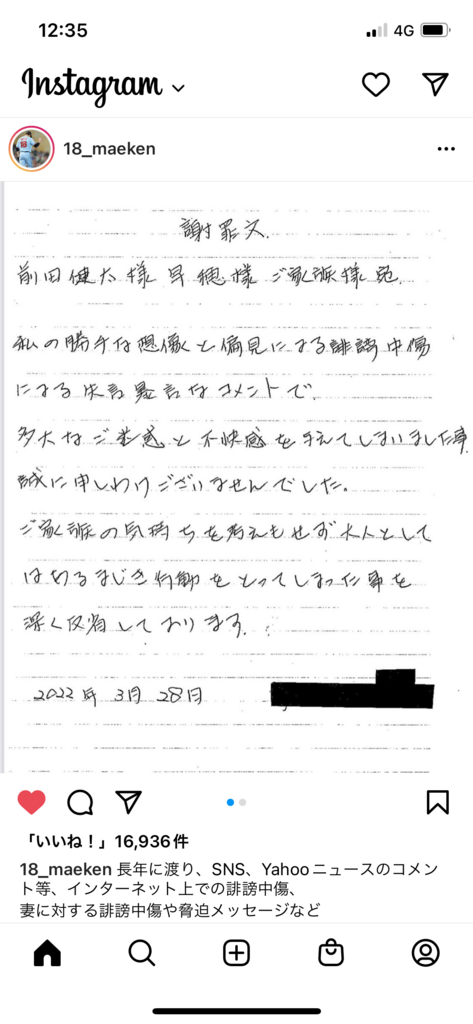 12:35
4G
Instagram
18_maeken
謝罪文.
前田健太様 早穂様 ご家族様 宛.
私の勝手な想像と偏見による誹謗中傷
による失言暴言なコメントで.
多大なご迷惑と不快感を与えてしまいました事.
誠に申しわけございませんでした。
ご家族の気持ちを考えもせず大人として
はあるまじき行動をとってしまった事を
深く反省しております.
2022年 3月 28日
「いいね！」16,936件
18_maeken 長年に渡り、SNS、Yahooニュースのコメン
ト等、インターネット上での誹謗中傷、
妻に対する誹謗中傷や脅迫メッセージなど